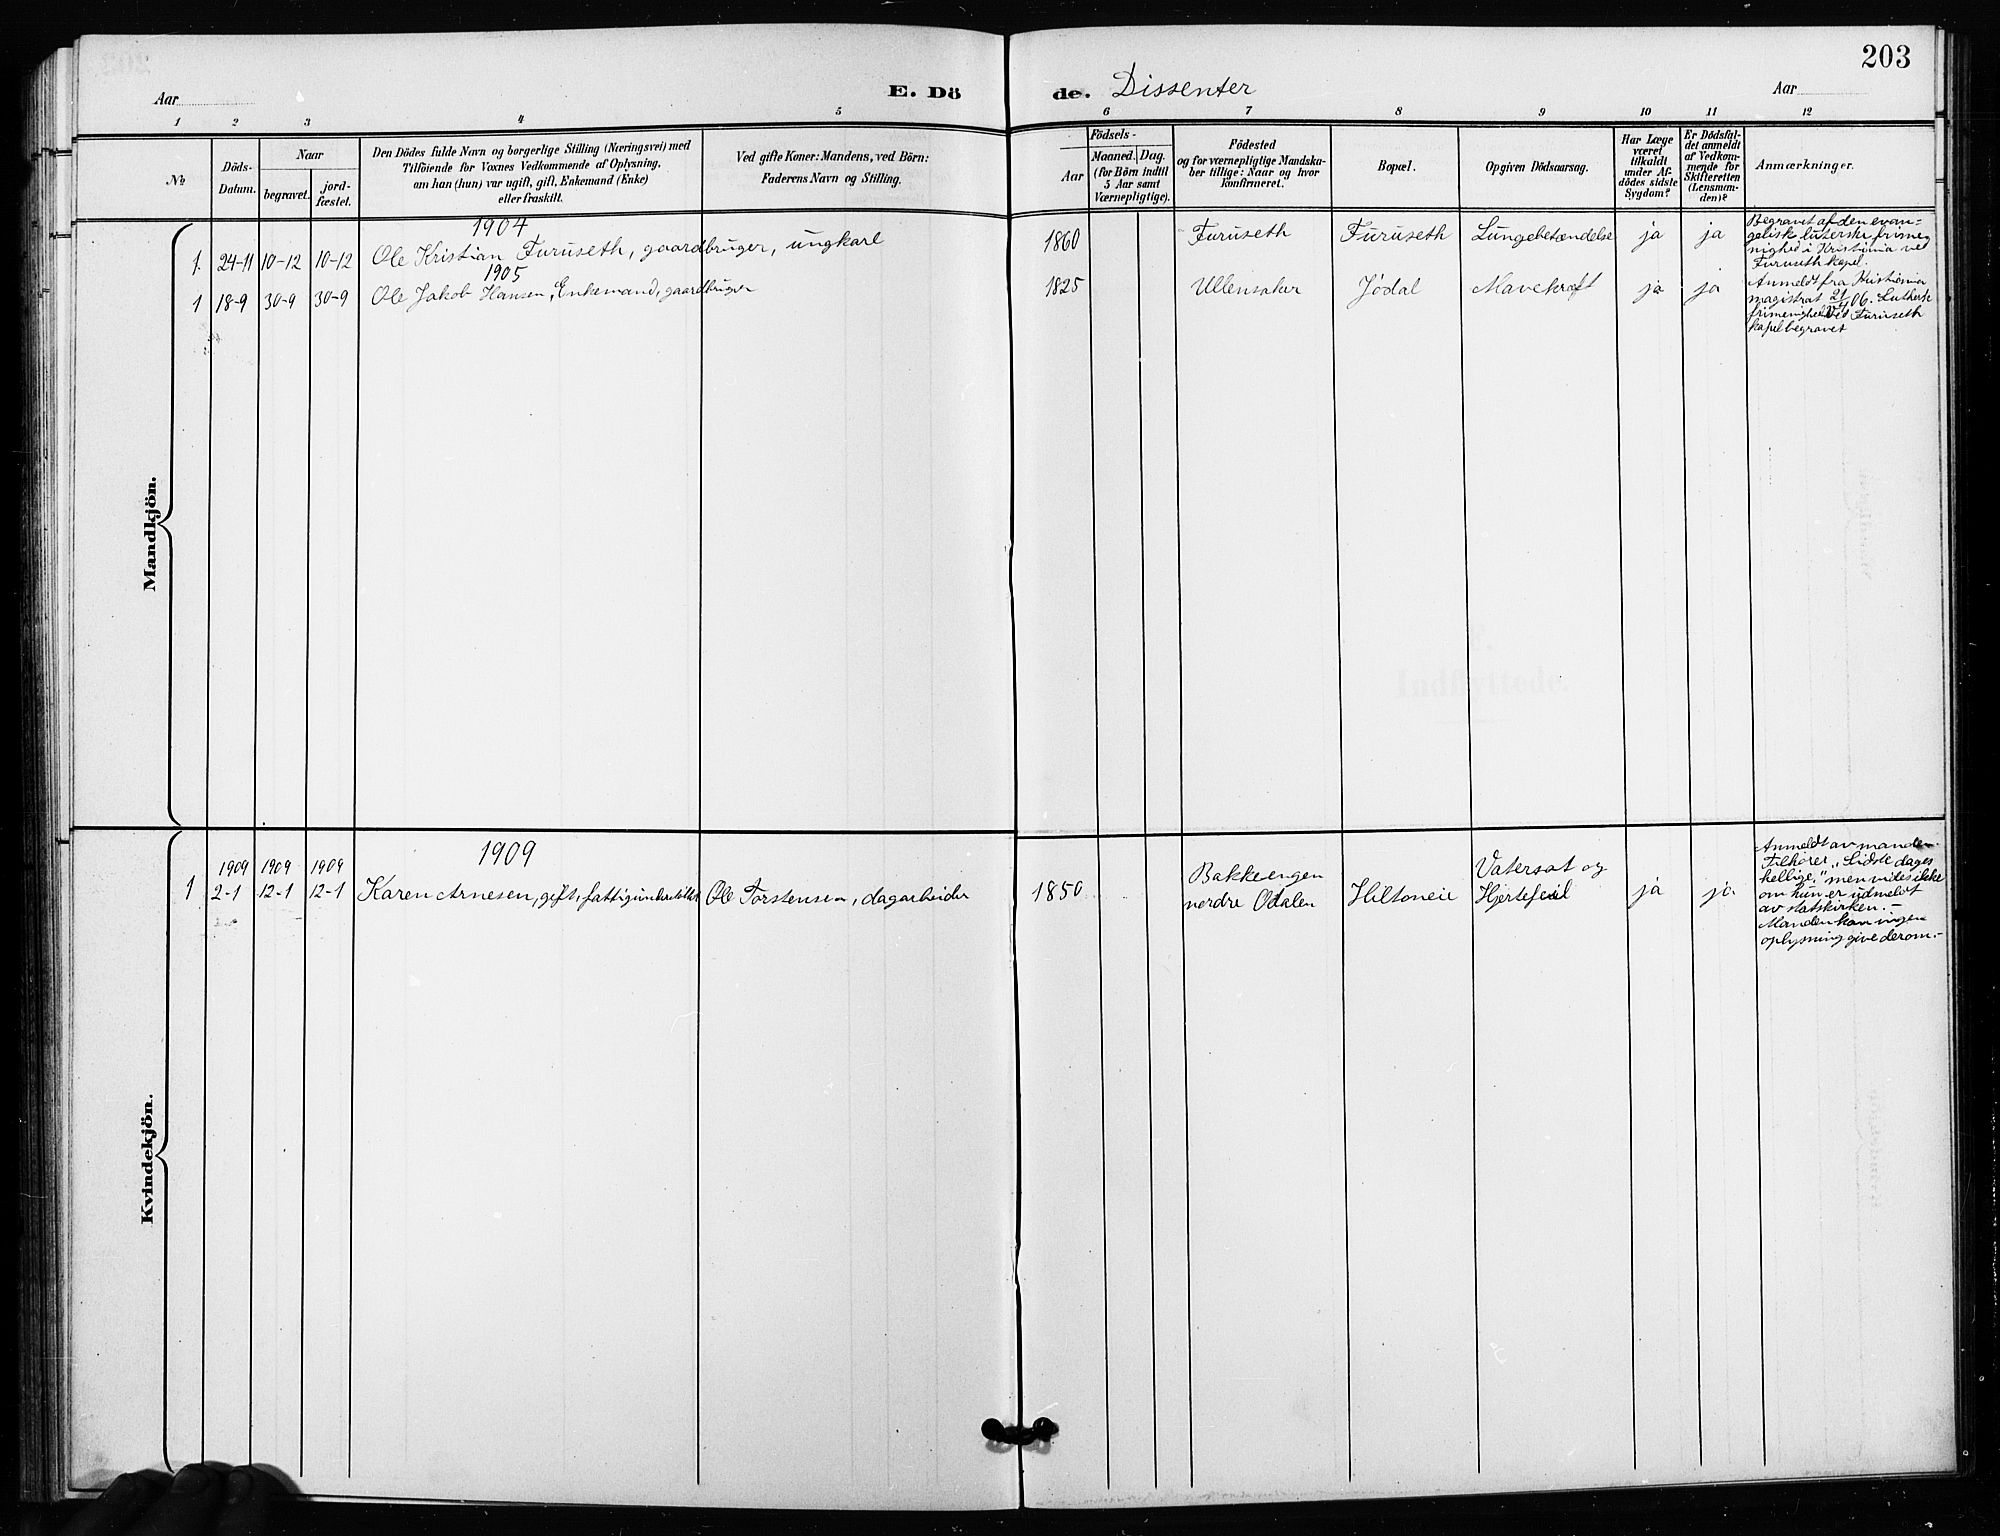 203
Aar
E. Dö
de. Dissenter
Aar
1 2 3 4 5 6 7 8 9 10 11 12
№
Döds-
Datum.
Naar
begravet.
jord-
fæstet.
Den Dödes fulde Navn og borgerlige Stilling (Næringsvei) med
Tilföiende for Voxnes Vedkommende af Oplysning,
om han (hun) var ugift, gift, Enkemand (Enke)
eller fraskilt.
Ved gifte Koner: Mandens, ved Börn:
Faderens Navn og Stilling.
Födsels-
Aar
Maaned. Dag.
(for Börn indtil
5 Aar samt
Værnepligtige).
Födested
og for værnepligtige Mandska-
ber tillige: Naar og hvor
konfirmeret.
Bopæl.
Opgiven Dödsaarsag.
Har Læge
været
tilkaldt
under Af-
dödes sidste
Sygdom?
Er Dödsfal-
det anmeldt
af Vedkom-
mende for
Skifteretten
(Lensman-
den)?
Anmærkninger.
Mandkjön.
1904
1. 24-11 10-12 10-12 Ole Kristian Furuseth, gaardbruger, ungkarl 1860 Furuseth Furuseth Lungebetændelse ja ja
Begravet af den evan-
geliske luterske frime-
nighed i Kristiania ved
Furuseth kapel.
1905
1 18-9 30-9 30-9 Ole Jakob Hansen, Enkemand, gaardbruger 1825 Ullensaker Jødal Mavekræft ja ja
Anmeldt fra Kristiania
magistrat 21/4 06. Luthersk
frimenighed. Ved Furuseth
kapel begravet
Kvindekjön.
1909
1909 1909 1909
1 2-1 12-1 12-1 Karen Arnesen, gift, fattigunderstøttet Ole Torstensen, dagarbeider 1850
Bakkeengen
nordre Odalen
Hiltoneie
Vatersot og
Hjertefeil
ja ja
Anmeldt av manden.
Tilhører "Sidste dages
hellige," men vides ikke
om hun er udmeldt
av statskirken.-
Manden kan ingen
oplysning give derom.-
Indflyttede.